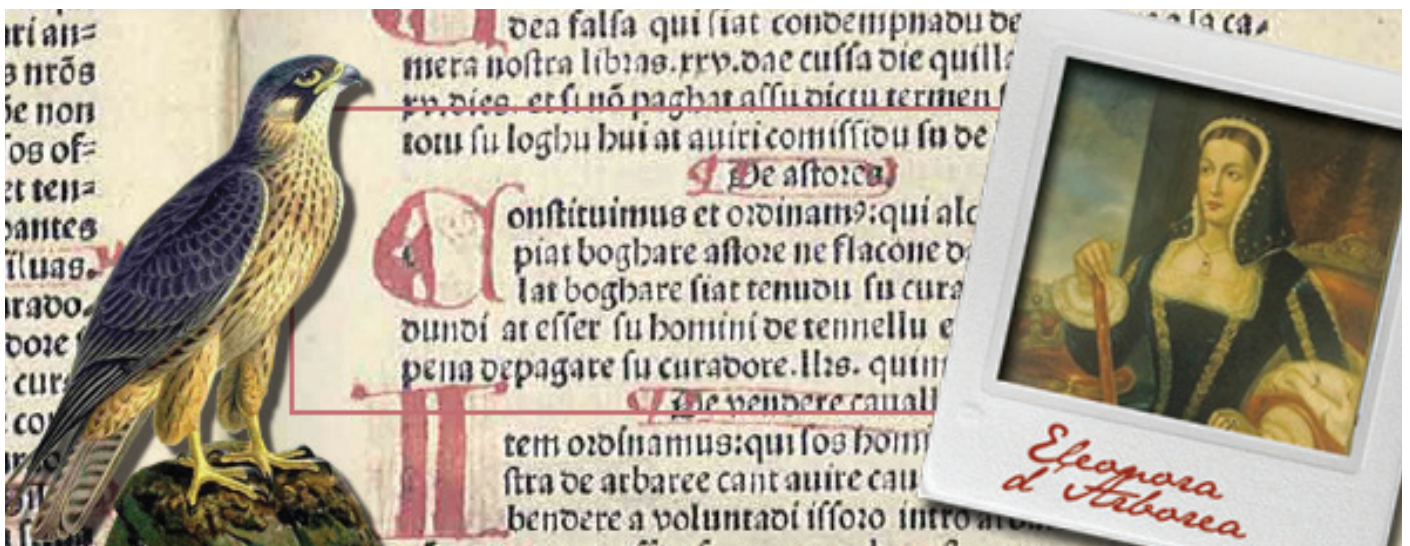 ari an=
s nrõs
de non
os of=
et ten=
pantes
siluas.
arado.
dore
cura
co
dea falsa qui siat condempnadu de a sa ca,
mera nostra libras.xxv.dae cussa die quilla
xv.dies. et si nõ paghat assu dictu termen
totu su loghu hui at auiri comissidu su de
De astores.
Constituimus et ordinamꝰ:qui alc
piat boghare astore ne flacone d
lat boghare siat tenudu su cura
dundi at esser su homini de tennellu e
pena depagare su curadore.llrs. quin
De vendere cauall
Item ordinamus:qui sos hom
stra de arbaree cant auire cau
bendere a voluntadi issoro intro
Eleonora
d'Arborea